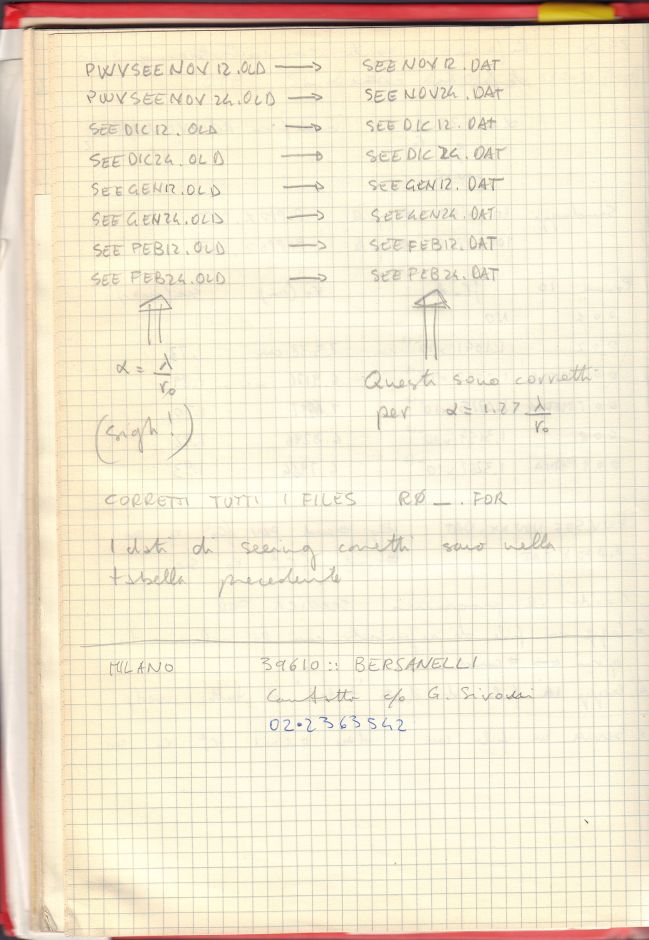 PWVSEENOV12.OLD → SEENOV12.DAT
PWVSEENOV24.OLD → SEENOV24.DAT
SEEDIC12.OLD → SEEDIC12.DAT
SEEDIC24.OLD → SEEDIC24.DAT
SEEGEN12.OLD → SEEGEN12.DAT
SEEGEN24.OLD → SEEGEN24.DAT
SEEFEB12.OLD → SEEFEB12.DAT
SEEFEB24.OLD → SEEFEB24.DAT
α = λ/r₀
(sigh!)
Questi sono corretti
per α = 1.27 λ/r₀
CORRETTI TUTTI I FILES RØ_.FOR
I dati di seeing corretti sono nella
tabella precedente
MILANO 39610::BERSANELLI
Contatto c/o G. Sironi
02·2363542